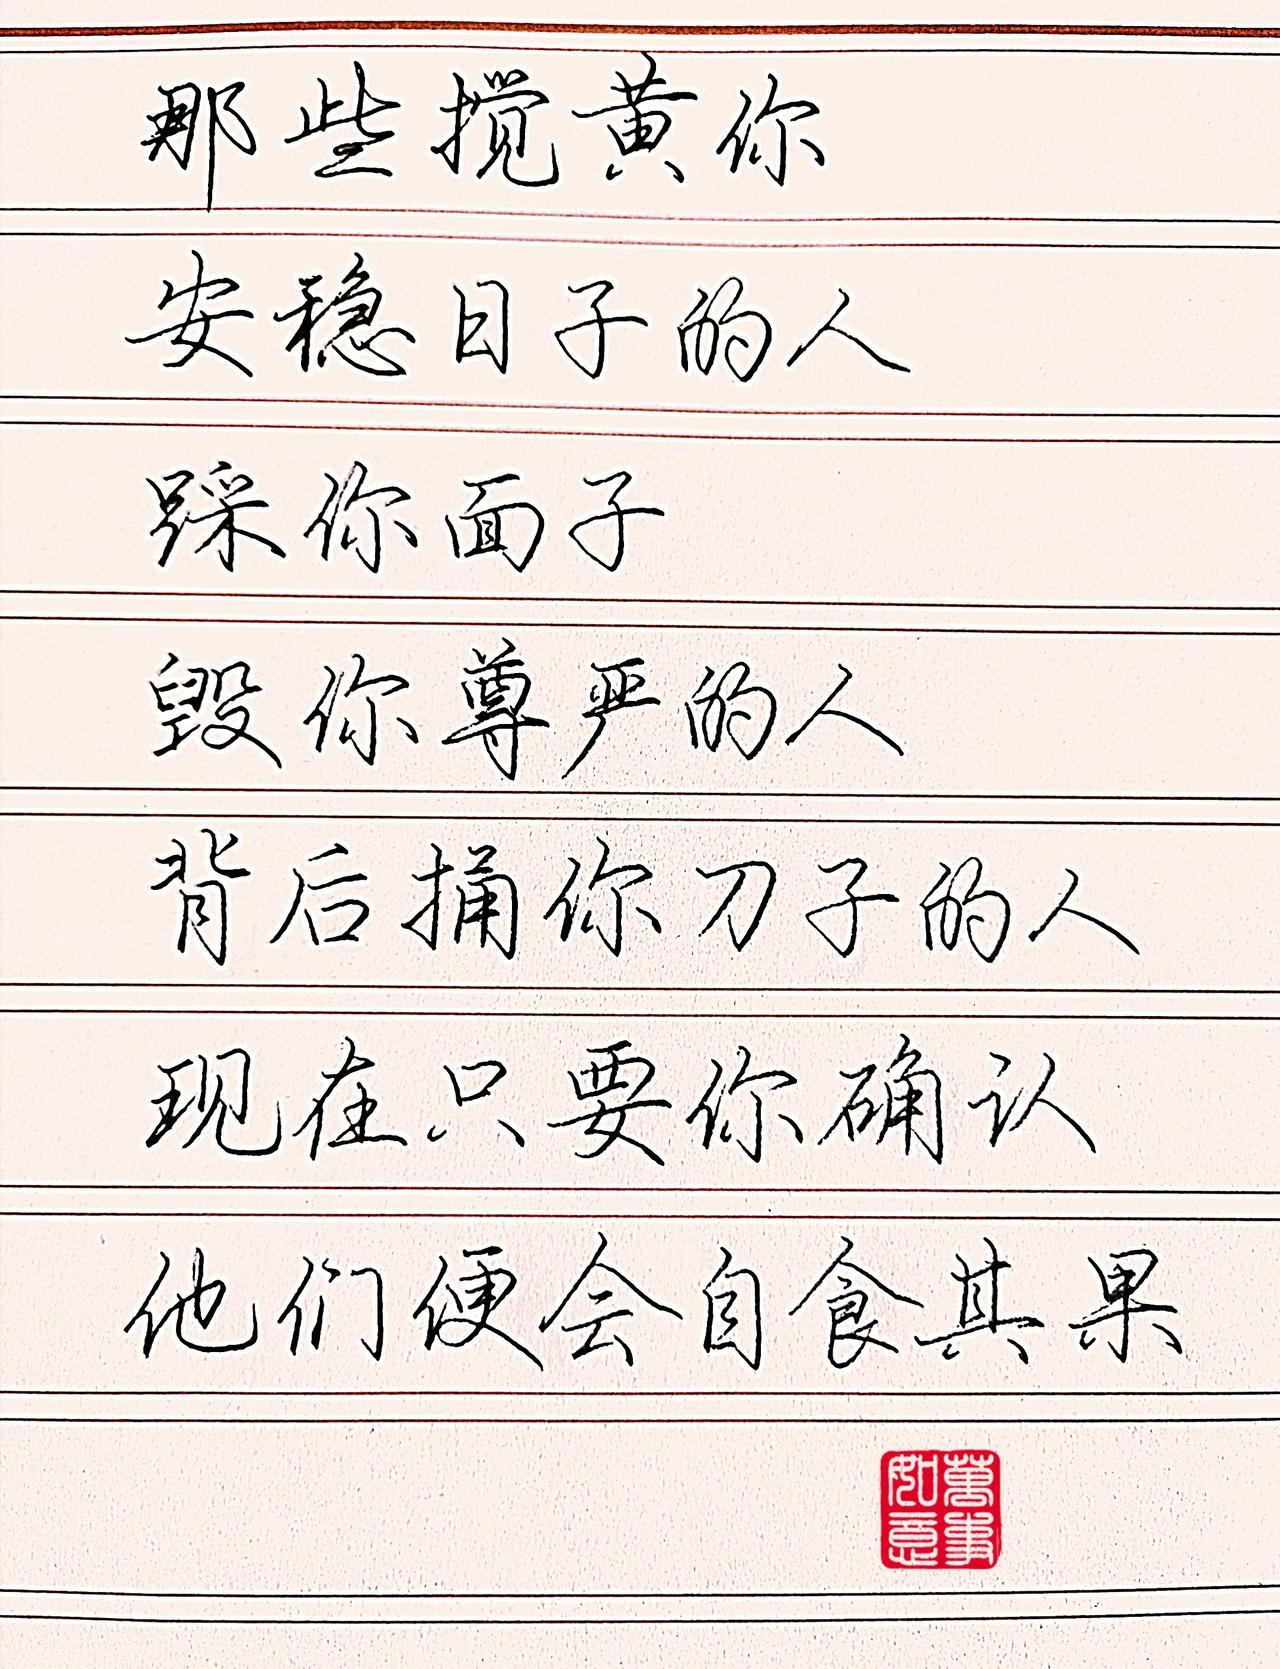 那些搅黄你
安稳日子的人
踩你面子
毁你尊严的人
背后捅你刀子的人
现在只要你确认
他们便会自食其果
萬事如意